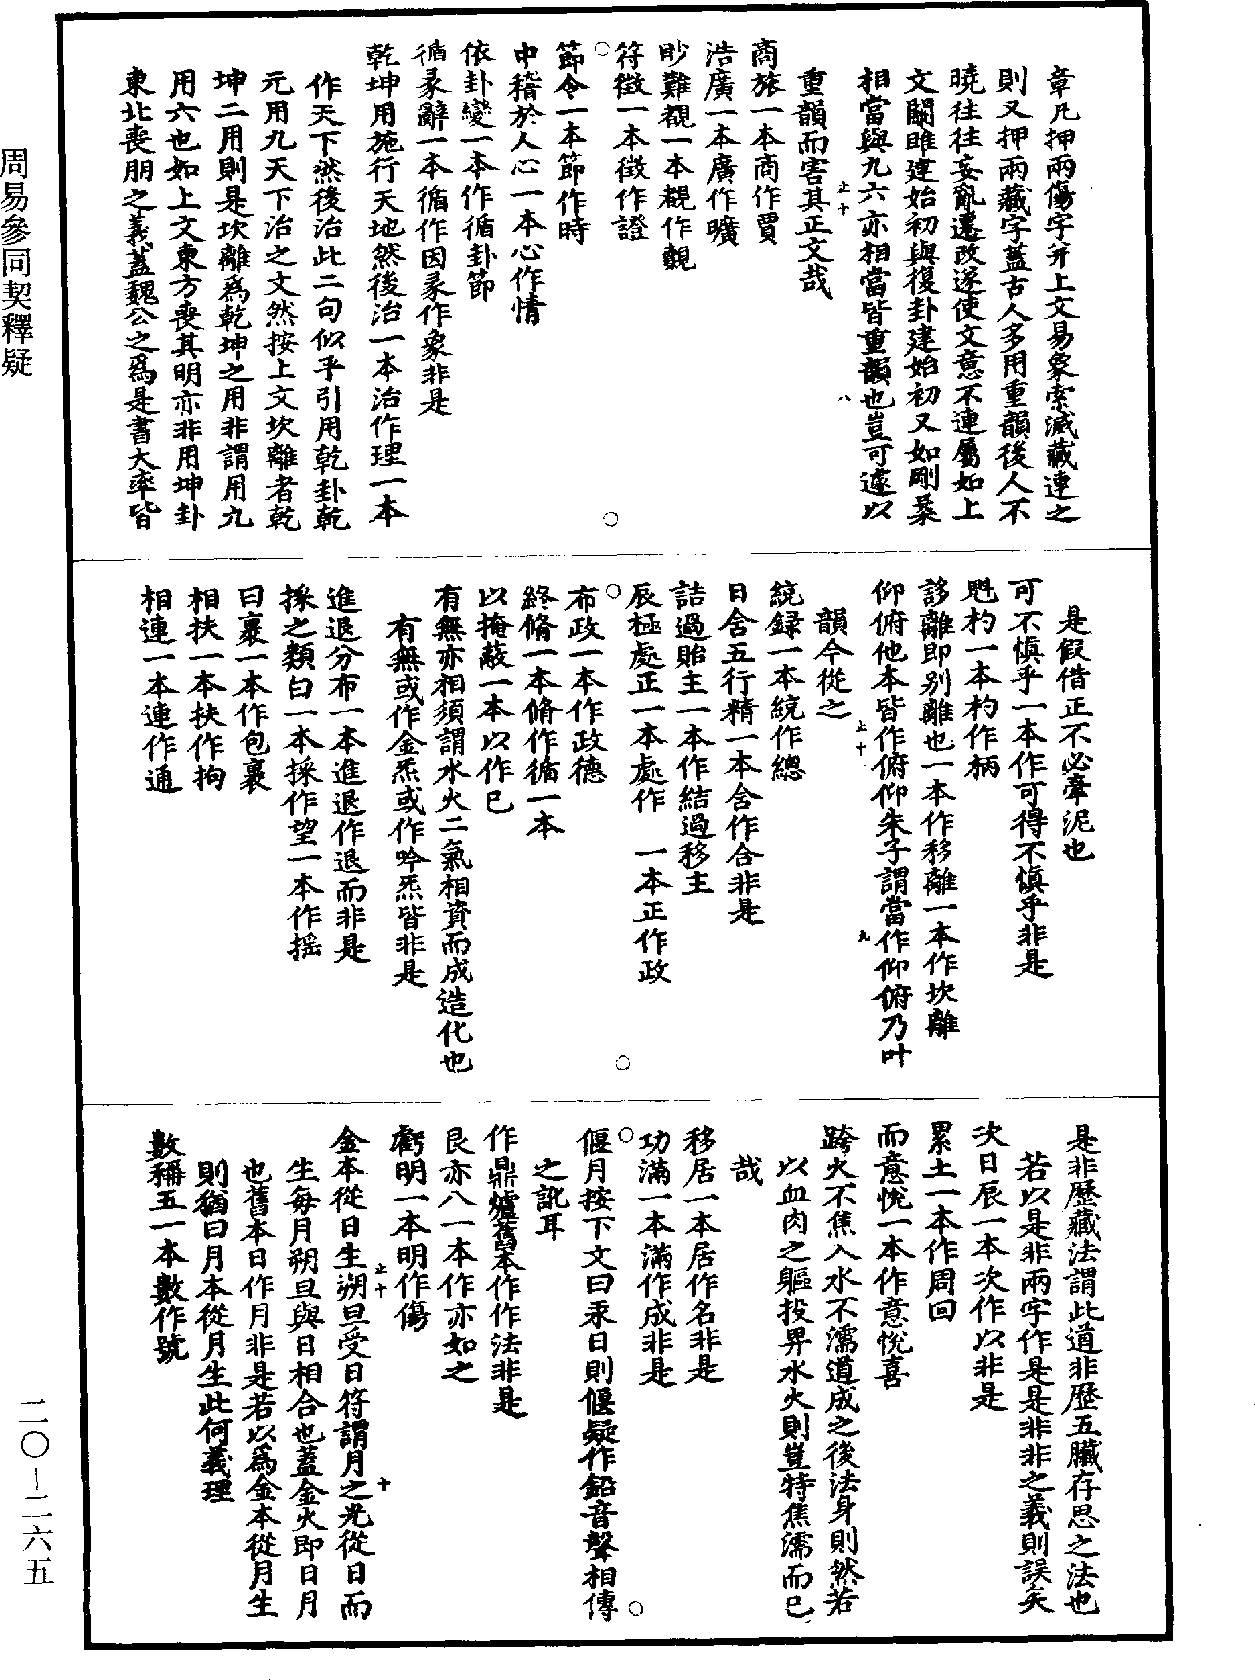 章凡押兩傷字并上文易象索滅藏連之
則又押兩藏字蓋古人多用重韻後人不
曉往往妄亂遷改遂使文意不連屬如上
文關雎建始初與復卦建始初又如剛柔
相當與九六亦相當皆重韻也豈可遽以
重韻而害其正文哉
商旅一本商作賈
浩廣一本廣作曠
眇難覩一本覩作觀
符徵一本徵作證
節令一本節作時
中稽於人心一本心作情
依卦變一本作循卦節
循彖辭一本循作因彖作象非是
乾坤用施行天地然後治一本治作理一本
作天下然後治此二句似乎引用乾卦乾
元用九天下治之文然按上文坎離者乾
坤二用則是坎離為乾坤之用非謂用九
用六也如上文東方喪其明亦非用坤卦
東北喪朋之義蓋魏公之為是書大率皆
是假借正不必牽泥也
可不慎乎一本作可得不慎乎非是
魁杓一本杓作柄
誃離即别離也一本作移離一本作坎離
仰俯他本皆作俯仰朱子謂當作仰俯乃叶
韻今從之
統録一本統作總
日含五行精一本含作合非是
詰過貽主一本作結過移主
辰極處正一本處作　一本正作政
布政一本作政德
終脩一本脩作循一本
以掩蔽一本以作已
有無亦相須謂水火二氣相資而成造化也
有無或作金炁或作吟炁皆非是
進退分布一本進退作退而非是
採之類白一本採作望一本作摇
曰裹一本作包裹
相扶一本扶作拘
相連一本連作通
是非歷藏法謂此道非歷五臟存思之法也
若以是非兩字作是是非非之義則誤矣
次日辰一本次作以非是
累土一本作周回
而意悅一本作意悅喜
跨火不焦入水不濡道成之後法身則然若
以血肉之軀投畀水火則豈特焦濡而已
哉
移居一本居作名非是
功滿一本滿作成非是
偃月按下文曰汞日則偃疑作鉛音聲相傳
之訛耳
作鼎爐舊本作作法非是
艮亦八一本作亦如之
虧明一本明作傷
金本從日生朔旦受日符謂月之光從日而
生每月朔旦與日相合也蓋金火即日月
也舊本日作月非是若以為金本從月生
則猶曰月本從月生此何義理
數稱五一本數作號
上十
八
上十
九
上十
十
周易參同契釋疑
二〇－二六五